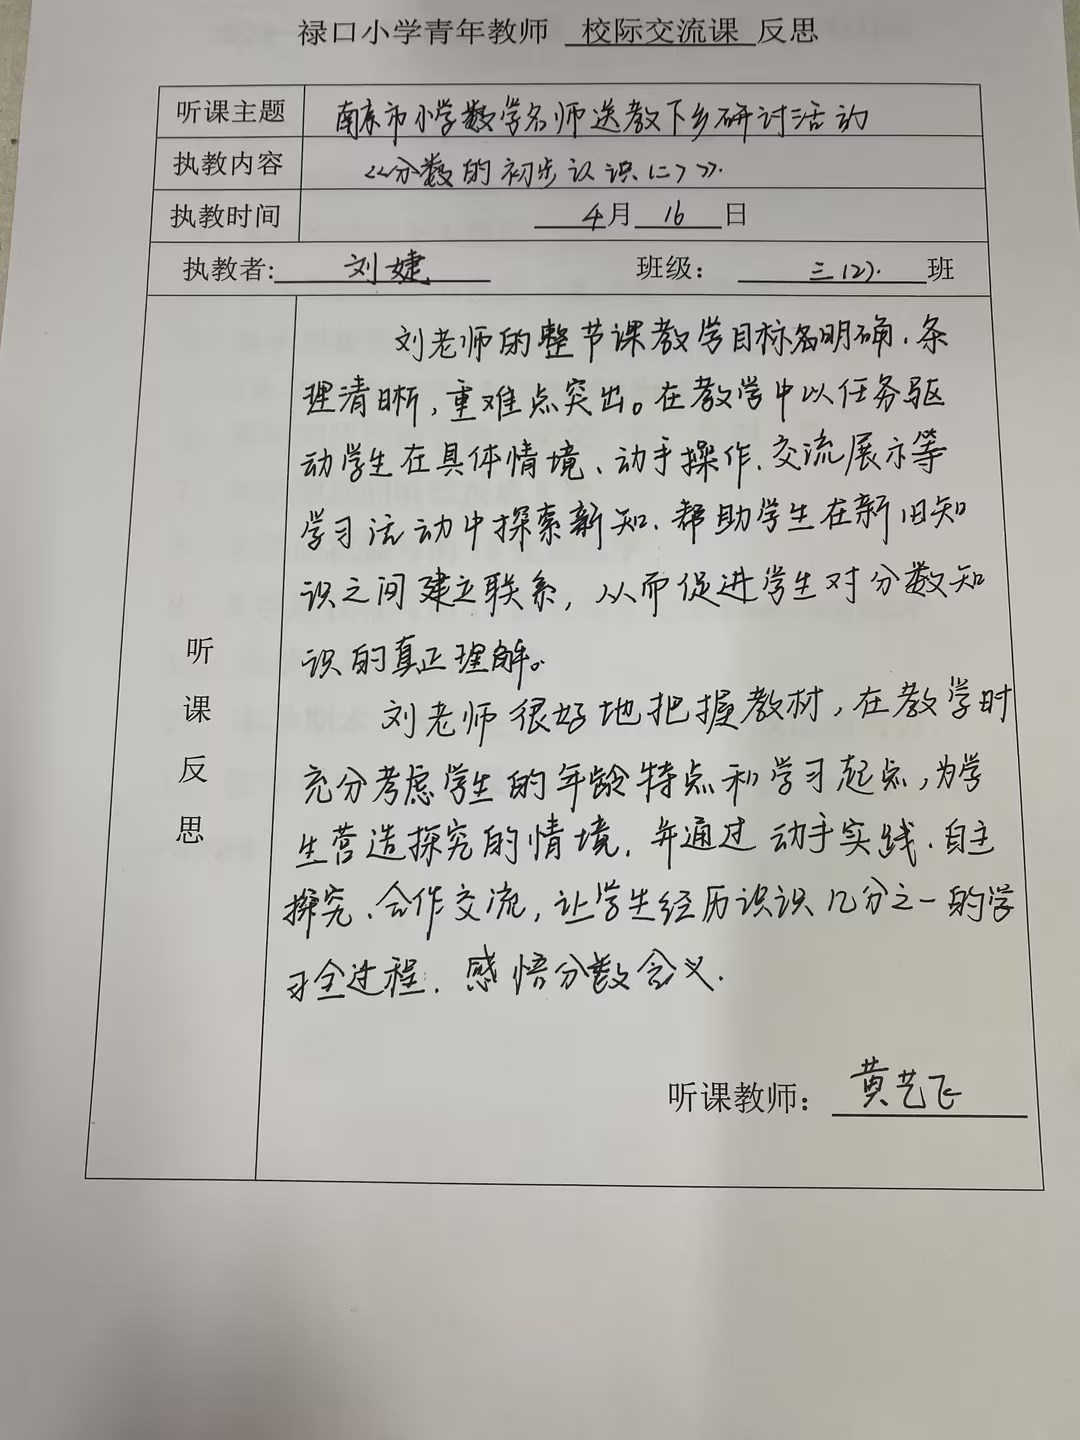 禄口小学青年教师 校际交流课 反思
听课主题 南京市小学数学名师送教下乡研讨活动
执教内容 《分数的初步认识(二)》.
执教时间 4月 16 日
执教者: 刘婕 班级: 三(2). 班
听课反思
刘老师的整节课教学目标明确.条
理清晰,重难点突出。在教学中以任务驱
动学生在具体情境、动手操作.交流展示等
学习活动中探索新知.帮助学生在新旧知
识之间建立联系,从而促进学生对分数知
识的真正理解。
刘老师很好地把握教材,在教学时
充分考虑学生的年龄特点和学习起点,为学
生营造探究的情境.并通过动手实践.自主
探究、合作交流,让学生经历识识几分之一的学
习全过程.感悟分数含义.
听课教师: 黄艺飞